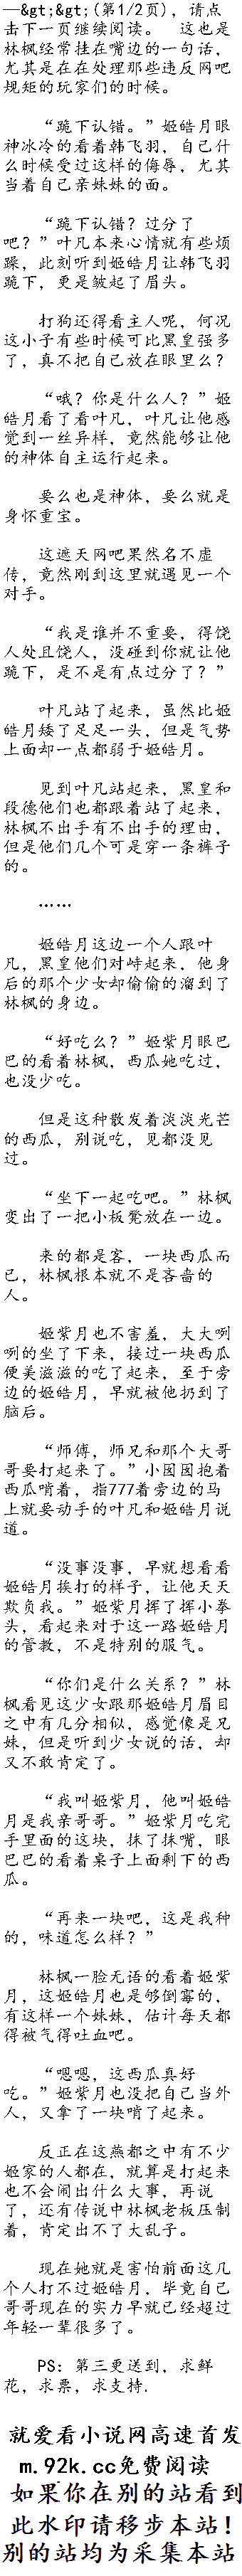 —&gt;&gt;(第1/2页)，请点
击下一页继续阅读。　这也是
林枫经常挂在嘴边的一句话，
尤其是在在处理那些违反网吧
规矩的玩家们的时候。
“跪下认错。”姬皓月眼
神冰冷的看着韩飞羽，自己什
么时候受过这样的侮辱，尤其
当着自己亲妹妹的面。
“跪下认错？过分了
吧？”叶凡本来心情就有些烦
躁，此刻听到姬皓月让韩飞羽
跪下，更是皱起了眉头。
打狗还得看主人呢，何况
这小子有些时候可比黑皇强多
了，真不把自己放在眼里么？
“哦？你是什么人？”姬
皓月看了看叶凡，叶凡让他感
觉到一丝异样，竟然能够让他
的神体自主运行起来。
要么也是神体，要么就是
身怀重宝。
这遮天网吧果然名不虚
传，竟然刚到这里就遇见一个
对手。
“我是谁并不重要，得饶
人处且饶人，没碰到你就让他
跪下，是不是有点过分了？”
叶凡站了起来，虽然比姬
皓月矮了足足一头，但是气势
上面却一点都弱于姬皓月。
见到叶凡站起来，黑皇和
段德他们也都跟着站了起来，
林枫不出手有不出手的理由，
但是他们几个可是穿一条裤子
的。
……
姬皓月这边一个人跟叶
凡，黑皇他们对峙起来，他身
后的那个少女却偷偷的溜到了
林枫的身边。
“好吃么？”姬紫月眼巴
巴的看着林枫，西瓜她吃过，
也没少吃。
但是这种散发着淡淡光芒
的西瓜，别说吃，见都没见
过。
“坐下一起吃吧。”林枫
变出了一把小板凳放在一边。
来的都是客，一块西瓜而
已，林枫根本就不是吝啬的
人。
姬紫月也不害羞，大大咧
咧的坐了下来，接过一块西瓜
便美滋滋的吃了起来，至于旁
边的姬皓月，早就被他扔到了
脑后。
“师傅，师兄和那个大哥
哥要打起来了。”小囡囡抱着
西瓜啃着，指777着旁边的马
上就要动手的叶凡和姬皓月说
道。
“没事没事，早就想看看
姬皓月挨打的样子，让他天天
欺负我。”姬紫月挥了挥小拳
头，看起来对于这一路姬皓月
的管教，不是特别的服气。
“你们是什么关系？”林
枫看见这少女跟那姬皓月眉目
之中有几分相似，感觉像是兄
妹，但是听到少女说的话，却
又不敢肯定了。
“我叫姬紫月，他叫姬皓
月是我亲哥哥。”姬紫月吃完
手里面的这块，抹了抹嘴，眼
巴巴的看着桌子上面剩下的西
瓜。
“再来一块吧，这是我种
的，味道怎么样？”
林枫一脸无语的看着姬紫
月，这姬皓月也是够倒霉的，
有这样一个妹妹，估计每天都
得被气得吐血吧。
“嗯嗯，这西瓜真好
吃。”姬紫月也没把自己当外
人，又拿了一块啃了起来。
反正在这燕都之中有不少
姬家的人都在，就算是打起来
也不会闹出什么大事，再说
了，还有传说中林枫老板压制
着，肯定出不了大乱子。
现在她就是害怕前面这几
个人打不过姬皓月，毕竟自己
哥哥现在的实力早就已经超过
年轻一辈很多了。
PS：第三更送到，求鲜
花，求票，求支持.
就爱看小说网高速首发
m.92k.cc免费阅读
如果你在别的站看到
此水印请移步本站！
别的站均为采集本站